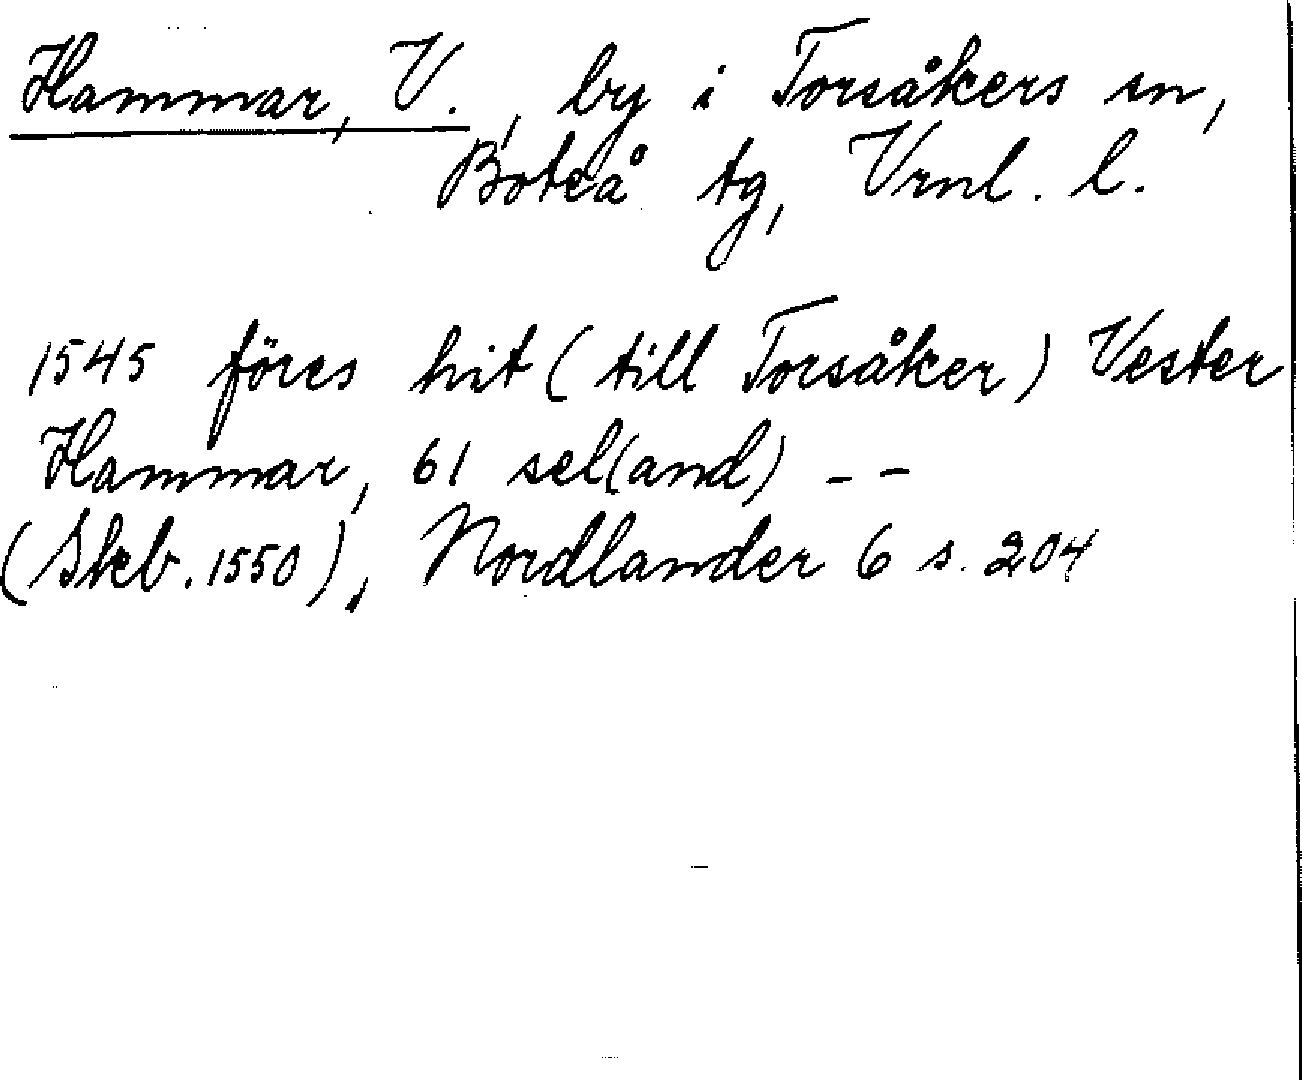 Hammar, V., by i Torsåkers sn,
Boteå tg, Vrnl. l.
1545 föres hit (till Torsåker) Vester
Hammar, 61 sel(and) - -
(Skb. 1550), Nordlander 6 s. 204